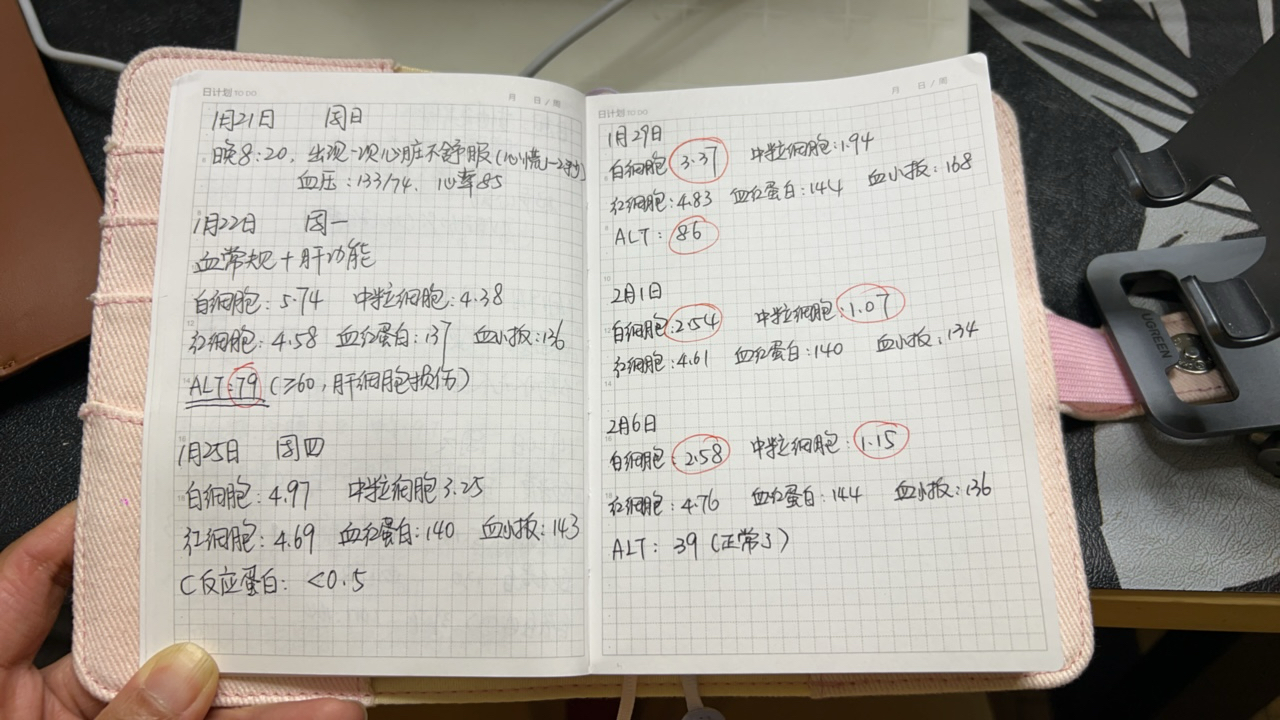 日计划 TO DO
月 日/周
1月21日 周日
晚8:20, 出现一次心脏不舒服(心慌1-2秒)
血压:133/74, 心率85
1月22日 周一
血常规+肝功能
白细胞:5.74 中粒细胞:4.38
红细胞:4.58 血红蛋白:137 血小板:136
ALT:79(≥60,肝细胞损伤)
1月25日 周四
白细胞:4.97 中粒细胞 3.25
红细胞:4.69 血红蛋白:140 血小板:143
C反应蛋白: <0.5
日计划 TO DO
月 日/周
1月29日
白细胞 3.37 中粒细胞:1.94
红细胞:4.83 血红蛋白:144 血小板:168
ALT: 86
2月1日
白细胞:2.54 中粒细胞:1.07
红细胞:4.61 血红蛋白:140 血小板:134
2月6日
白细胞:2.58 中粒细胞:1.15
红细胞:4.76 血红蛋白:144 血小板:136
ALT: 39(正常了)
UGREEN